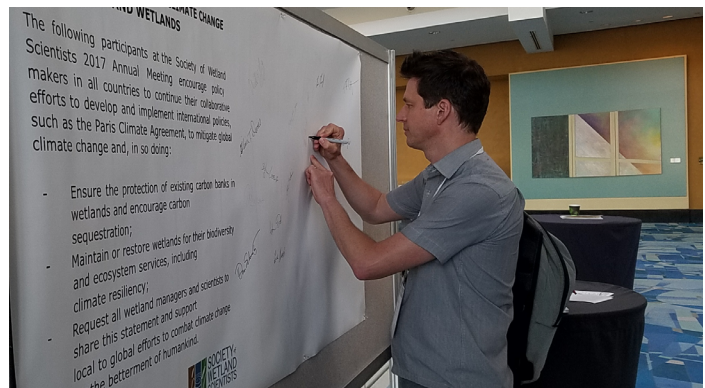 CLIMATE CHANGE
AND WETLANDS
The following participants at the Society of Wetland
Scientists 2017 Annual Meeting encourage policy
makers in all countries to continue their collaborative
efforts to develop and implement international policies,
such as the Paris Climate Agreement, to mitigate global
climate change and, in so doing:
- Ensure the protection of existing carbon banks in
wetlands and encourage carbon
sequestration;
- Maintain or restore wetlands for their biodiversity
and ecosystem services, including
climate resiliency;
- Request all wetland managers and scientists to
share this statement and support
local to global efforts to combat climate change
the betterment of humankind.
SOCIETY of
WETLAND
SCIENTISTS